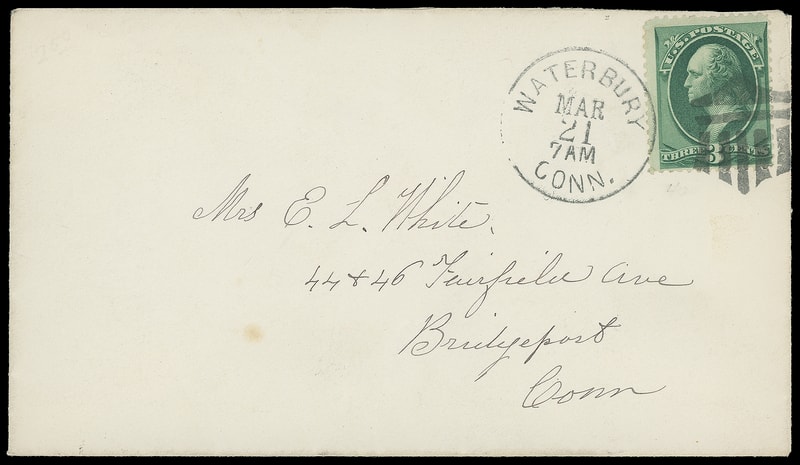 U.S. POSTAGE
THREE 3 CENTS
WATERBURY
MAR
21
7AM
CONN.
Mrs E. L. White,
44 & 46 Fairfield Ave
Bridgeport
Conn